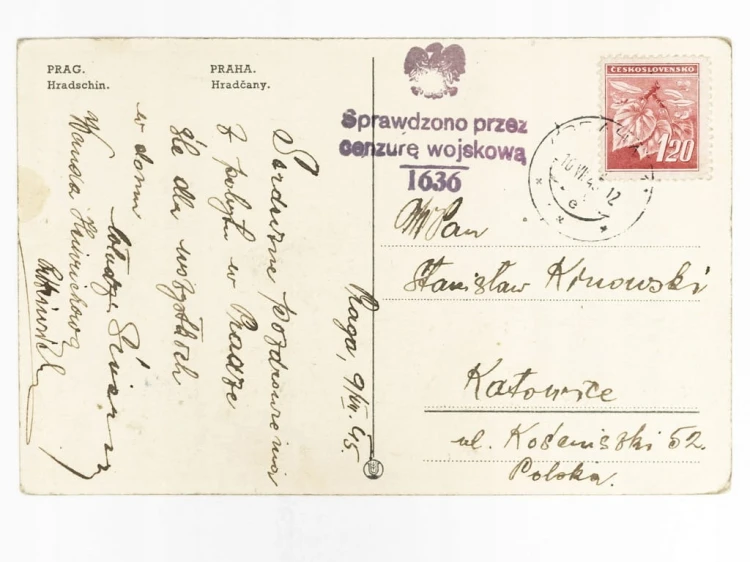 PRAG.
Hradschin.
PRAHA.
Hradčany.
Praga, 9/VII. 45.
Serdeczne pozdrowienia
z pobytu w Pradze
śle dla wszystkich
w domu
Wanda Heinrichowa
Sprawdzono przez
cenzurę wojskową
1636
ČESKOSLOVENSKO
1·20
WPan
Stanisław
Katowice
ul. 52.
Polska.